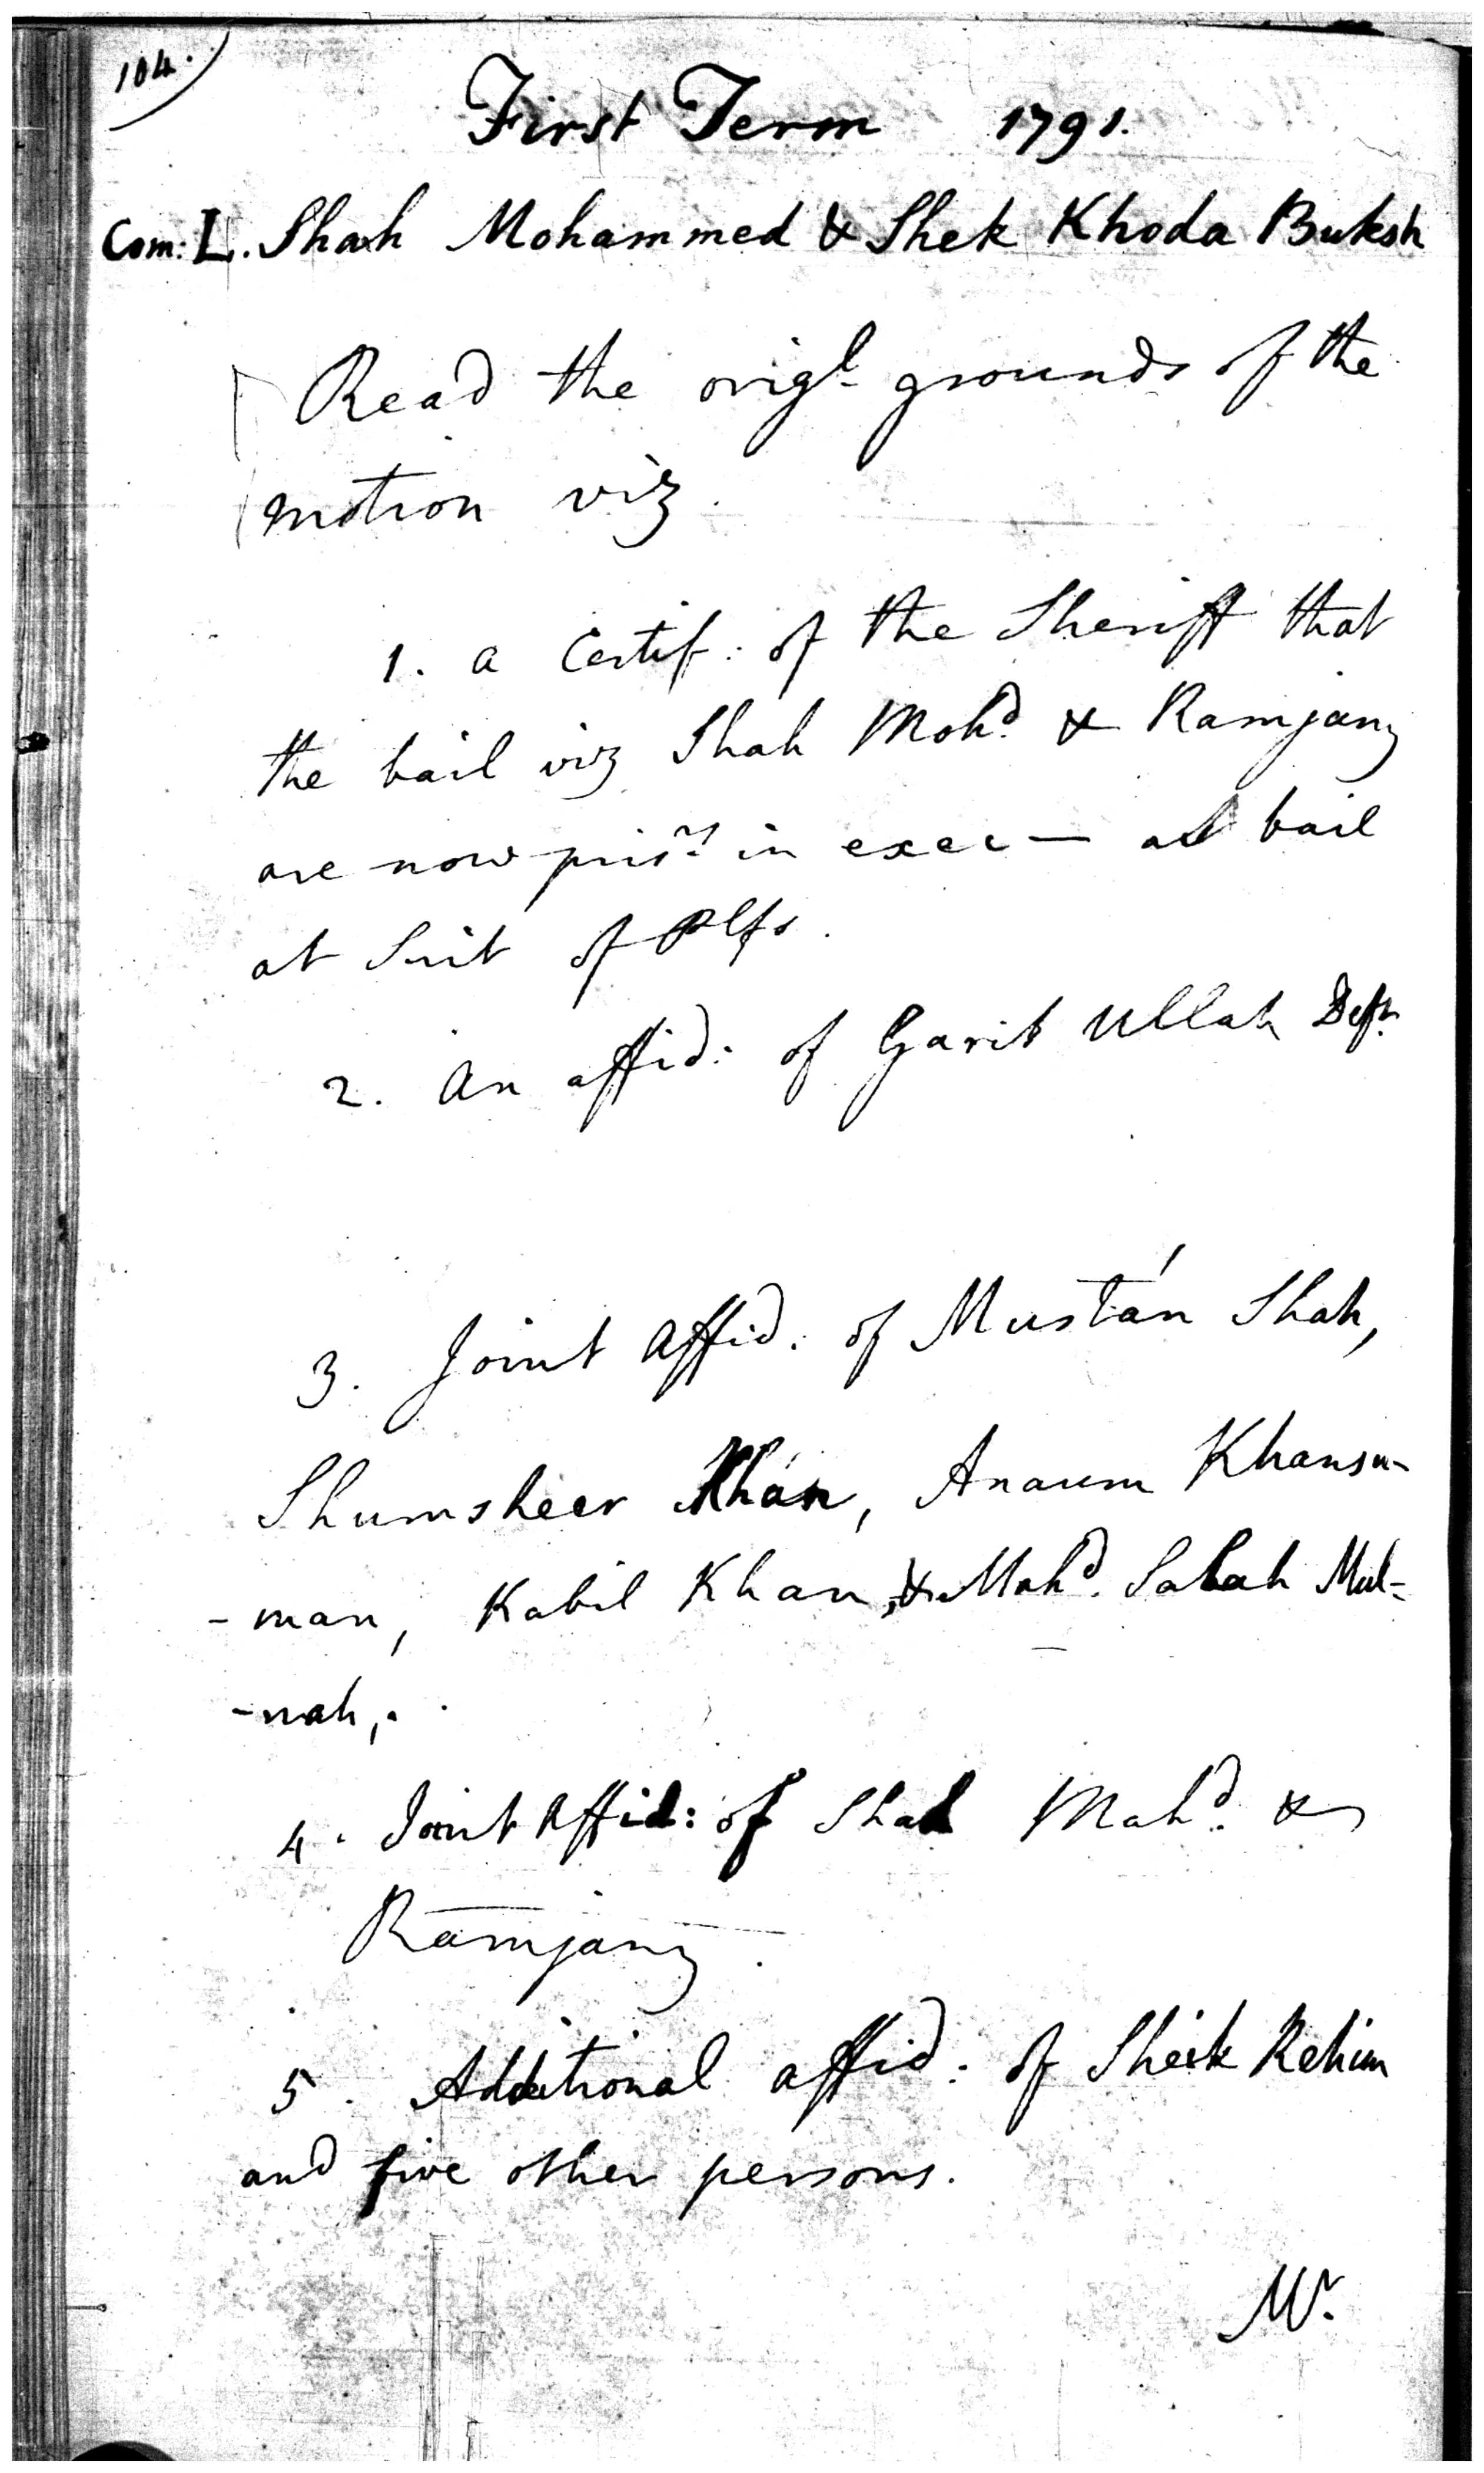 104.
First Term 1791.
Com: L. Shah Mohammed & Shek Khoda Buksh
Read the origl grounds of the
motion viz.
1. a Certif: of the Sheriff that
the bail viz Shah Mohd. & Ramjany
are now prisrs in exec — as bail
at Suit of Plfs.
2. An affid: of Garib Ullah Deft.
3. Joint Affid. of Mustán Shah,
Shumsheer Khán, Anaum Khansa-
-man, Kabil Khan, & Mohd. Salah Mul-
-nah,.
4. Joint Affid: of Shah Mahd. &
Ramjany.
5. Additional affid: of Sheik Rehim
and five other persons.
Mr.